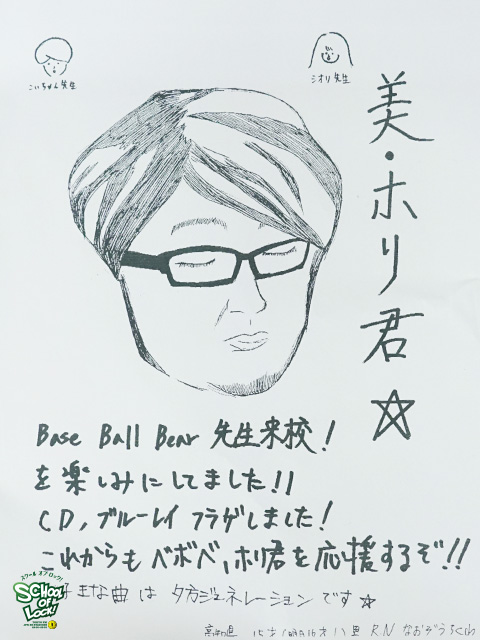 こいちゃん先生
シオリ先生
美・ホリ君☆
Base Ball Bear 先生来校!
を楽しみにしてました!!
CD,ブルーレイ フラゲしました!
これからも ベボベ,ホリ君を応援するぞ!!
きな曲は 夕方ジェネレーション です☆
スクール オブ ロック!
SCHOOL OF LOCK!
R.N なおぞう